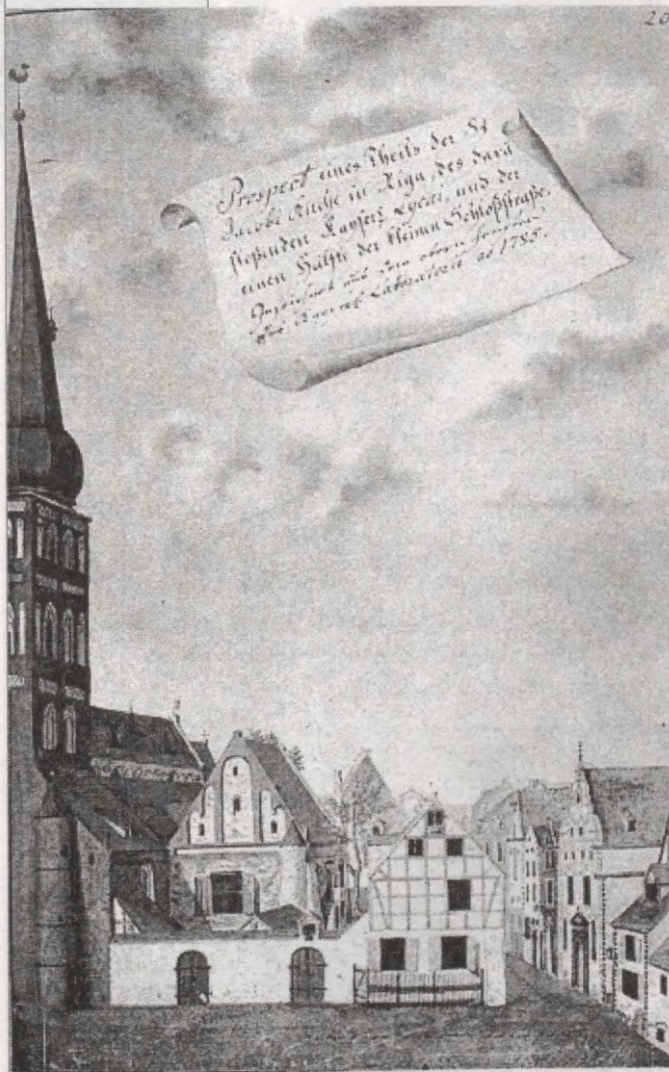 Prospect eines Theils der St
Jacobi Kirche in Riga, des dara
stoßenden Kaysers Lycei, und der
einen Hälfte der kleinen Schloßstraße.
Gezeichnet aus dem obern
des Laboratorii ao 1785.